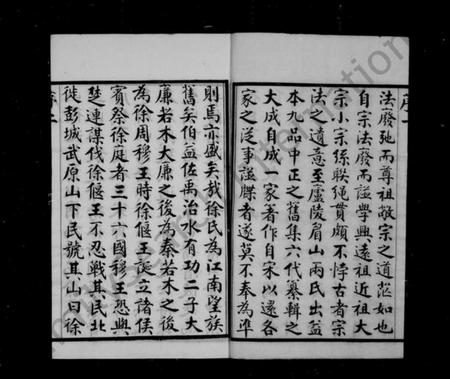 法廢弛而尊祖敬宗之道茫如也
自宗法廢而譜學興遠祖近祖大
宗小宗絲聯繩貫頗不悖古者宗
法之遺意至廬陵眉山兩氏出益
本九品中正之舊集六代纂輯之
大成自成一家著作自宋以還各
家之從事譜牒者遂莫不奉為準
則焉亦盛矣哉徐氏為江南望族
舊矣伯益佐禹治水有功二子大
廉若木大廉之後為秦若木之後
為徐周穆王時徐偃王誕立諸侯
賓祭徐庭者三十六國穆王恐與
楚連謀伐徐偃王不忍戰其民北
徙彭城武原山下民號其山曰徐